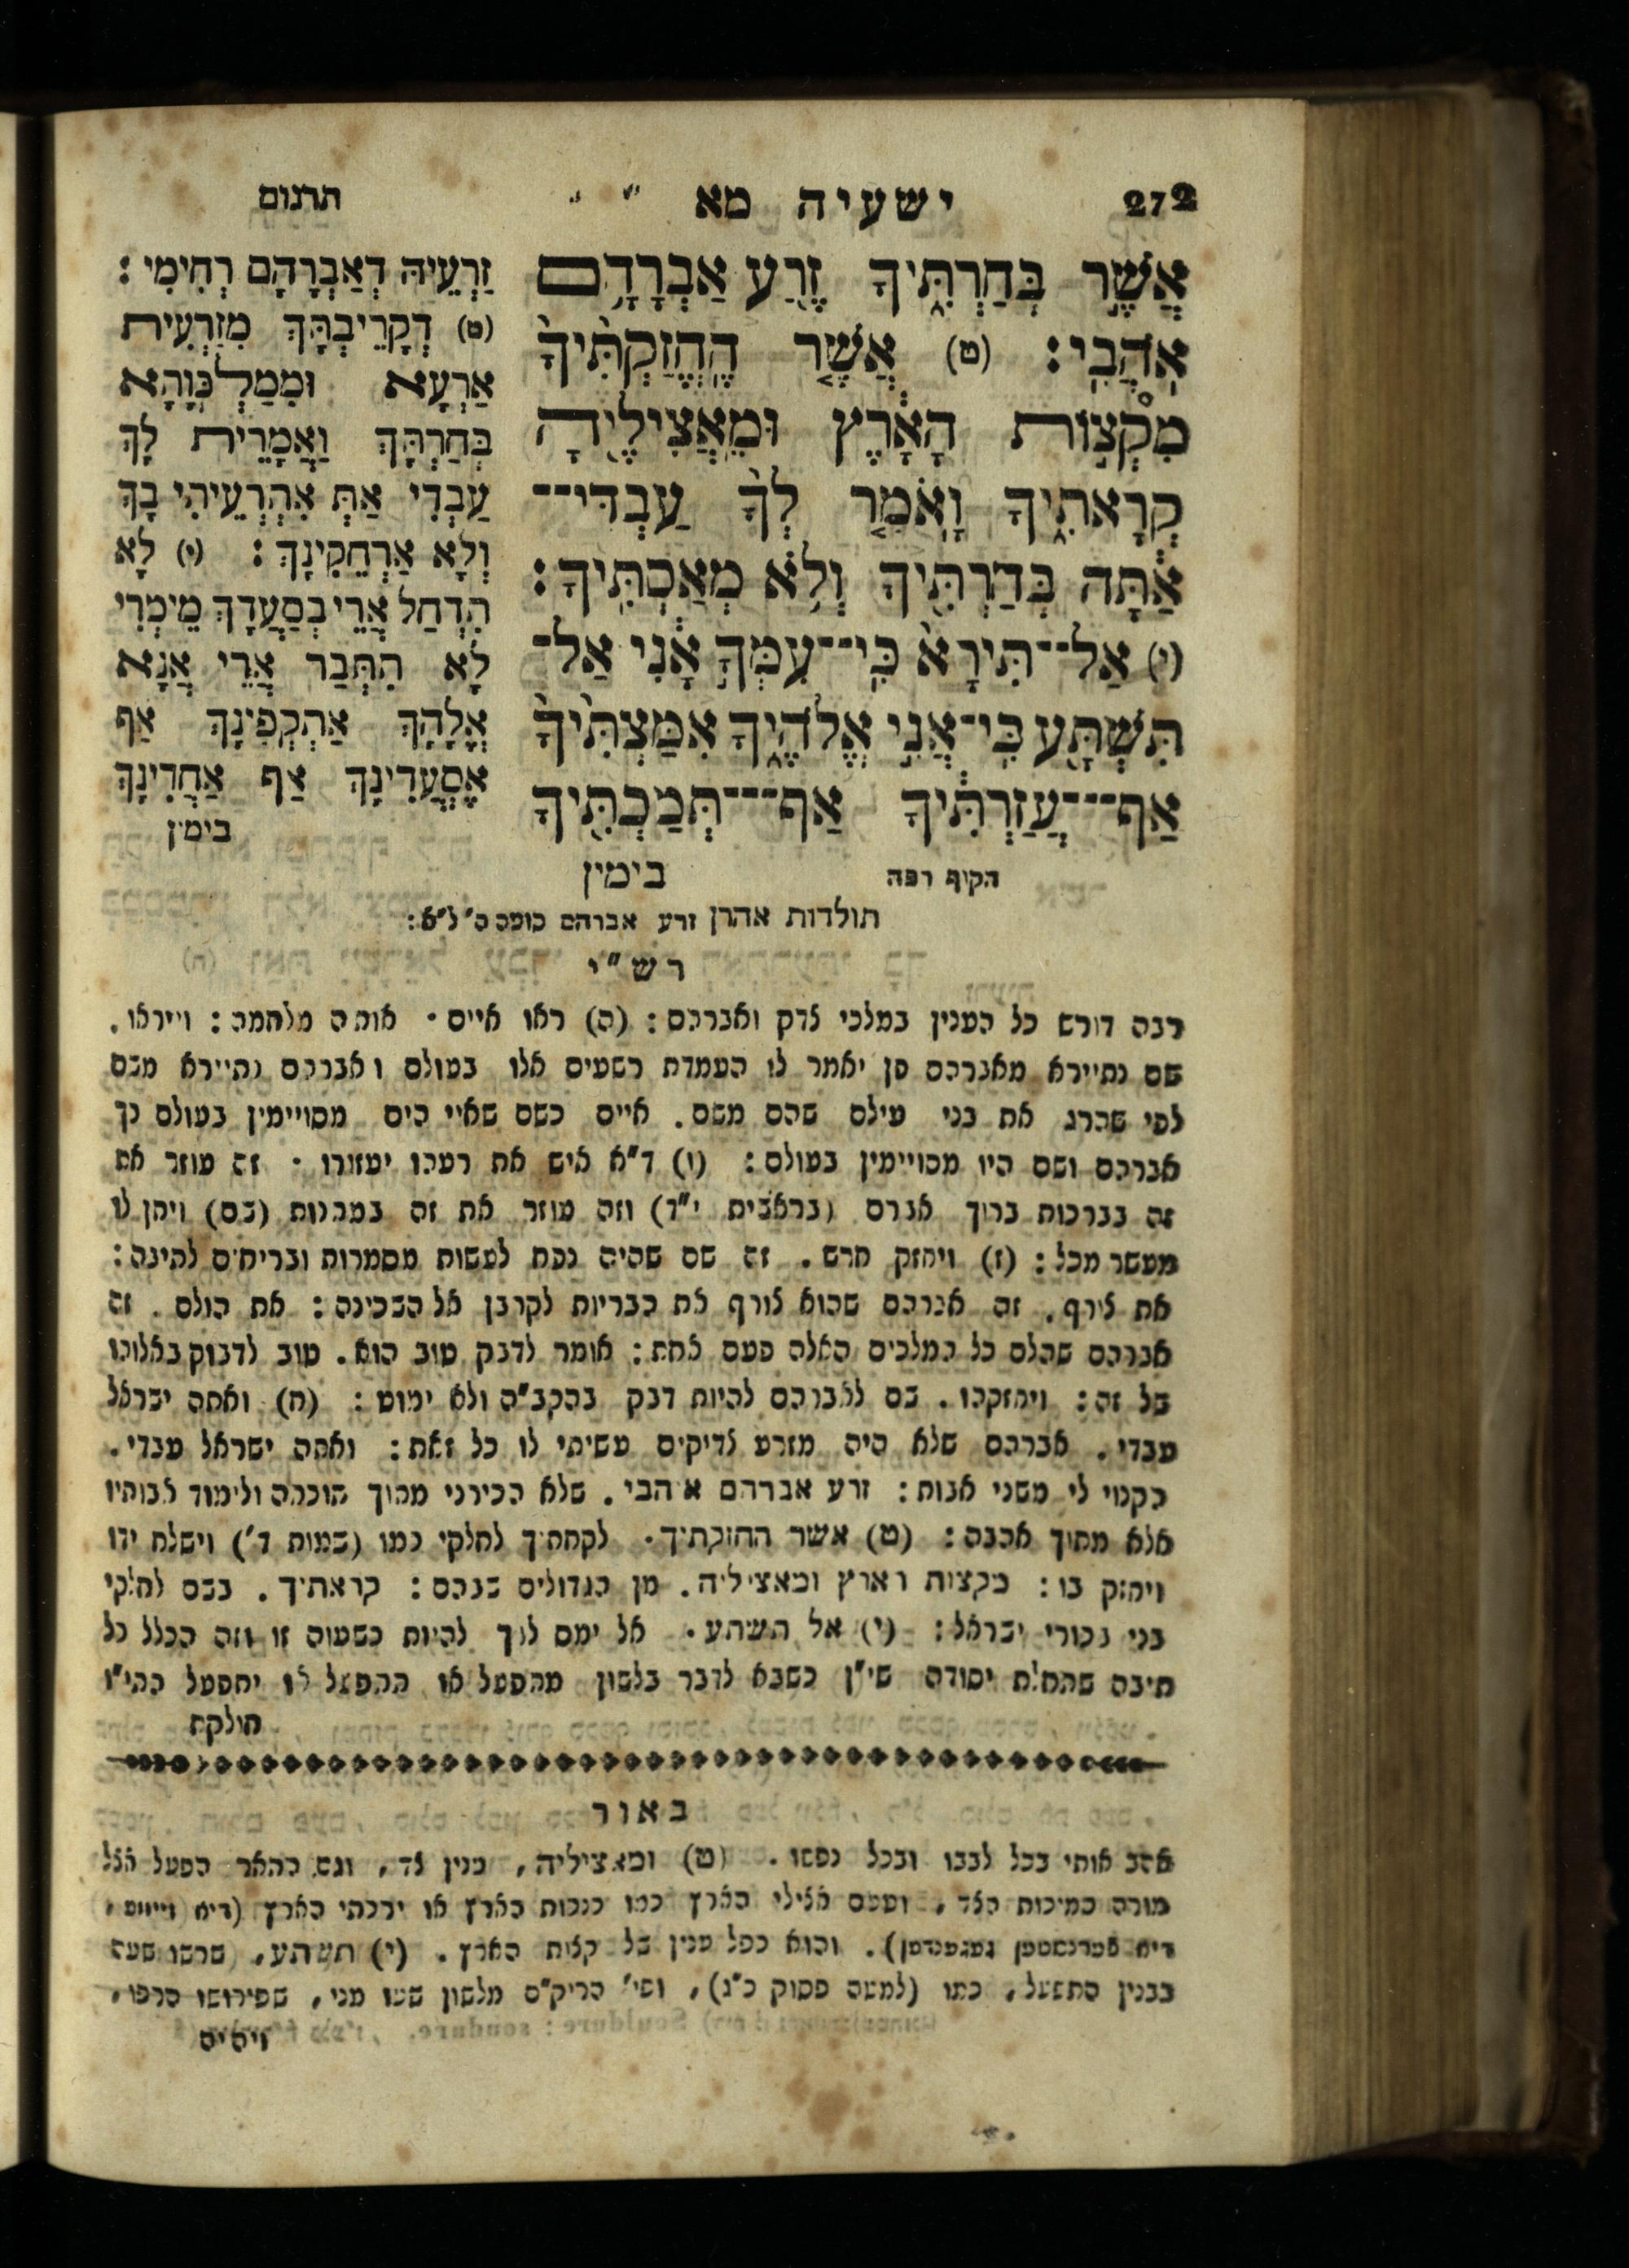 272 ישעיה מא תרגום
אֲשֶׁ֣ר בְּחַרְתִּ֑יךָ זֶ֖רַע אַבְרָהָ֥ם
אֹהֲבִֽי׃ (ט) אֲשֶׁ֤ר הֶחֱזַקְתִּ֙יךָ֙
מִקְצ֣וֹת הָאָ֔רֶץ וּמֵאֲצִילֶ֖יהָ
קְרָאתִ֑יךָ וָאֹ֤מַר לְךָ֙ עַבְדִּי־
אַ֔תָּה בְּחַרְתִּ֖יךָ וְלֹ֥א מְאַסְתִּֽיךָ׃
(י) אַל־תִּירָא֙ כִּֽי־עִמְּךָ֣ אָ֔נִי אַל־
תִּשְׁתָּ֖ע כִּֽי־אֲנִ֣י אֱלֹהֶ֑יךָ אִמַּצְתִּ֙יךָ֙
אַף־עֲזַרְתִּ֔יךָ אַף־תְּמַכְתִּ֖יךָ
הקוף רפה בימין
זַרְעֵיהּ דְאַבְרָהָם רְחִימִי:
(ט) דְקָרֵיבְתָּךְ מִזַרְעִית
אַרְעָא וּמִמַלְכְּוָהָא
בְּחַרְתָּךְ וַאֲמָרֵית לָךְ
עַבְדִי אַתְּ אִתְרְעֵיתִי בָךְ
וְלָא אַרְחֵקִינָךְ: (י) לָא
תִדְחַל אֲרֵי בְסַעֲדָךְ מֵימְרִי
לָא תִתְּבַר אֲרֵי אֲנָא
אֱלָהָךְ אַתְקֵפִינָךְ אַף
אֲסַעֲדִינָךְ אַף אַחֲדִינָךְ
בימין
תולדות אהרן זרע אברהם סוטה ל"א:
רש"י
רבה דורש כל הענין במלכי צדק ואברהם: (ה) ראו איים · אותה מלחמה: וייראו.
שם נתיירא מאברהם פן יאמר לו העמדת רשעים אלו בעולם ואברהם נתיירא משם
לפי שהרג את בני עילם שהם משם. איים כשם שאיי הים מסויימין בעולם כך
אברהם ושם היו מסויימין בעולם: (ו) ד"א איש את רעהו יעזורו · זה עוזר את
זה בברכות ברוך אברם (בראשית י"ד) וזה עוזר את זה במתנות (שם) ויתן לו
מעשר מכל: (ז) ויחזק חרש. זה שם שהיה נפח לעשות מסמרות ובריחים לתיבה:
את צורף. זה אברהם שהוא צורף את הבריות לקרבן אל השכינה: את הולם. זה
אברהם שהלם כל המלכים האלה פעם אחת: אומר לדבק טוב הוא. טוב לדבוק באלוהו
של זה: ויחזקהו. שם לאברהם להיות דבק בהקב"ה ולא ימוט: (ח) ואתה ישראל
עבדי. אברהם שלא היה מזרע צדיקים עשיתי לו כל זאת: ואתה ישראל עבדי.
הקנוי לי משני אבות: זרע אברהם אהבי. שלא הכירני מתוך תוכחה ולימוד אבותיו
אלא מתוך אהבה: (ט) אשר החזקתיך. לקחתיך לחלקי כמו (שמות ד') וישלח ידו
ויחזק בו: מקצות הארץ ומאציליה. מן הגדולים שבהם: קראתיך. בשם לחלקי
בני בכורי ישראל: (י) אל תשתע. אל ימס לבך להיות כשעוה זו וזה הכלל כל
תיבה שתחלת יסודה שי"ן כשבא לדבר בלשון מתפעל או התפעל או יתפעל התי"ו
חולקת
באור
אהב אותי בכל לבבו ובכל נפשו. (ט) ומאציליה, כנין צד, וגם התאר הפעל אצל
מורה סמיכות הצד, וטעם אצילי הארץ כמו כנפות הארץ או ירכתי הארץ
. והוא כפל ענין של קצות הארץ. (י) תשתע, שרשו שעה
בבנין התפעל, כמו (למעה פסוק כ"ג), ופי' הריק"ם מלשון שעו מני, שפירושו הרפו,